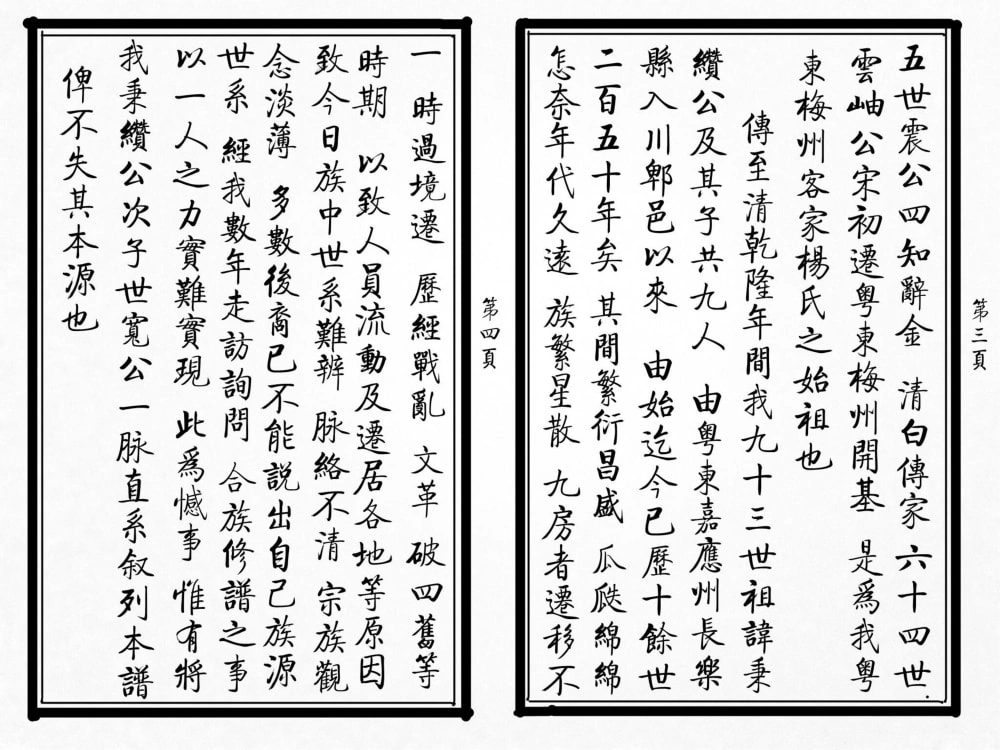 第三頁
五世震公四知辭金 清白傳家 六十四世
雲岫公宋初遷粤東梅州開基 是爲我粤
東梅州客家楊氏之始祖也
傳至清乾隆年間我九十三世祖諱秉
纘公及其子共九人 由粤東嘉應州長樂
縣入川郫邑以來 由始迄今已歷十餘世
二百五十年矣 其間繁衍昌盛 瓜瓞綿綿
怎奈年代久遠 族繁星散 九房者遷移不
第四頁
一 時過境遷 歷經戰亂 文革 破四舊等
時期 以致人員流動及遷居各地等原因
致今日族中世系難辨 脉絡不清 宗族觀
念淡薄 多數後裔已不能説出自己族源
世系 經我數年走訪詢問 合族修譜之事
以一人之力實難實現 此爲憾事 惟有將
我秉纘公次子世寬公一脉直系叙列本譜
俾不失其本源也